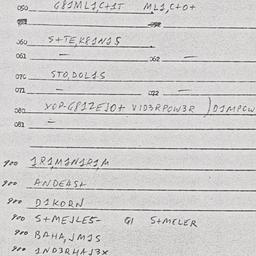 050 G81ML1,C+1T ML1,C+O+
060 S+TE,K81N1S
061 — 062 —
070 STO,DOL1S
071 — 072 —
080 XOP-G812EJO+ V1D3RPOW3R )D1MPOW
081 —
900 1R1M1N1R1M
900 ANDEAS+
900 D1KORN
900 S+MEJLES- G1 S+MELER
900 BAHA,JM1S
900 1ND3RHAJ3X